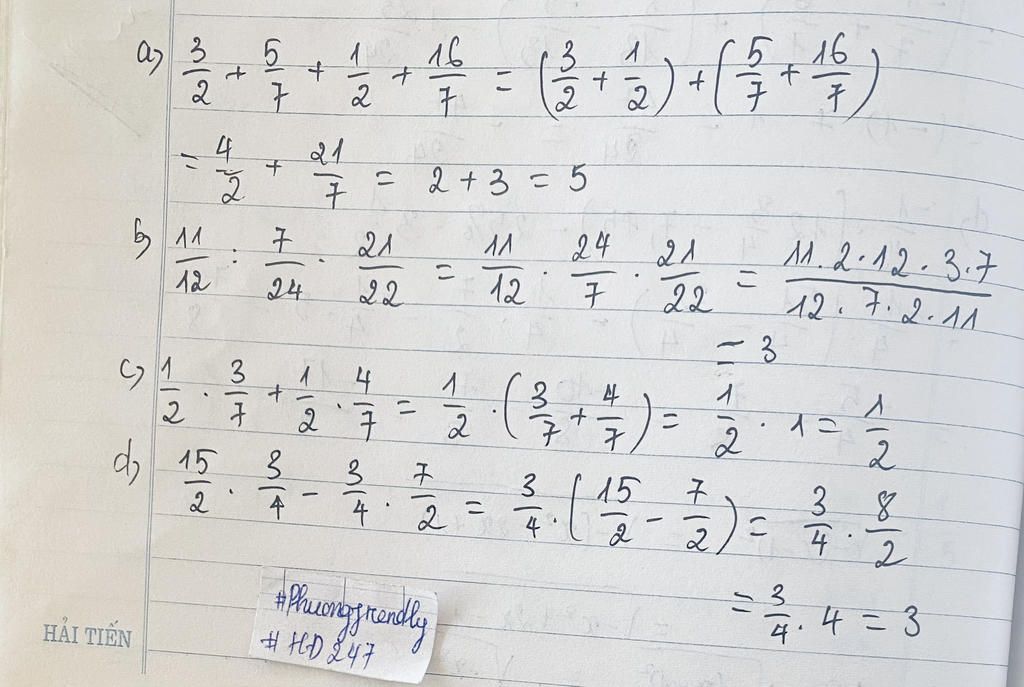 a) 3/2 + 5/7 + 1/2 + 16/7 = (3/2 + 1/2) + (5/7 + 16/7)
= 4/2 + 21/7 = 2 + 3 = 5
b) 11/12 : 7/24 . 21/22 = 11/12 . 24/7 . 21/22 = 11.2.12.3.7/12.7.2.11
= 3
c) 1/2 . 3/7 + 1/2 . 4/7 = 1/2 . (3/7 + 4/7) = 1/2 . 1 = 1/2
d) 15/2 . 3/4 - 3/4 . 7/2 = 3/4 . (15/2 - 7/2) = 3/4 . 8/2
= 3/4 . 4 = 3
#Phuongfrendly
#HD247
HẢI TIẾN